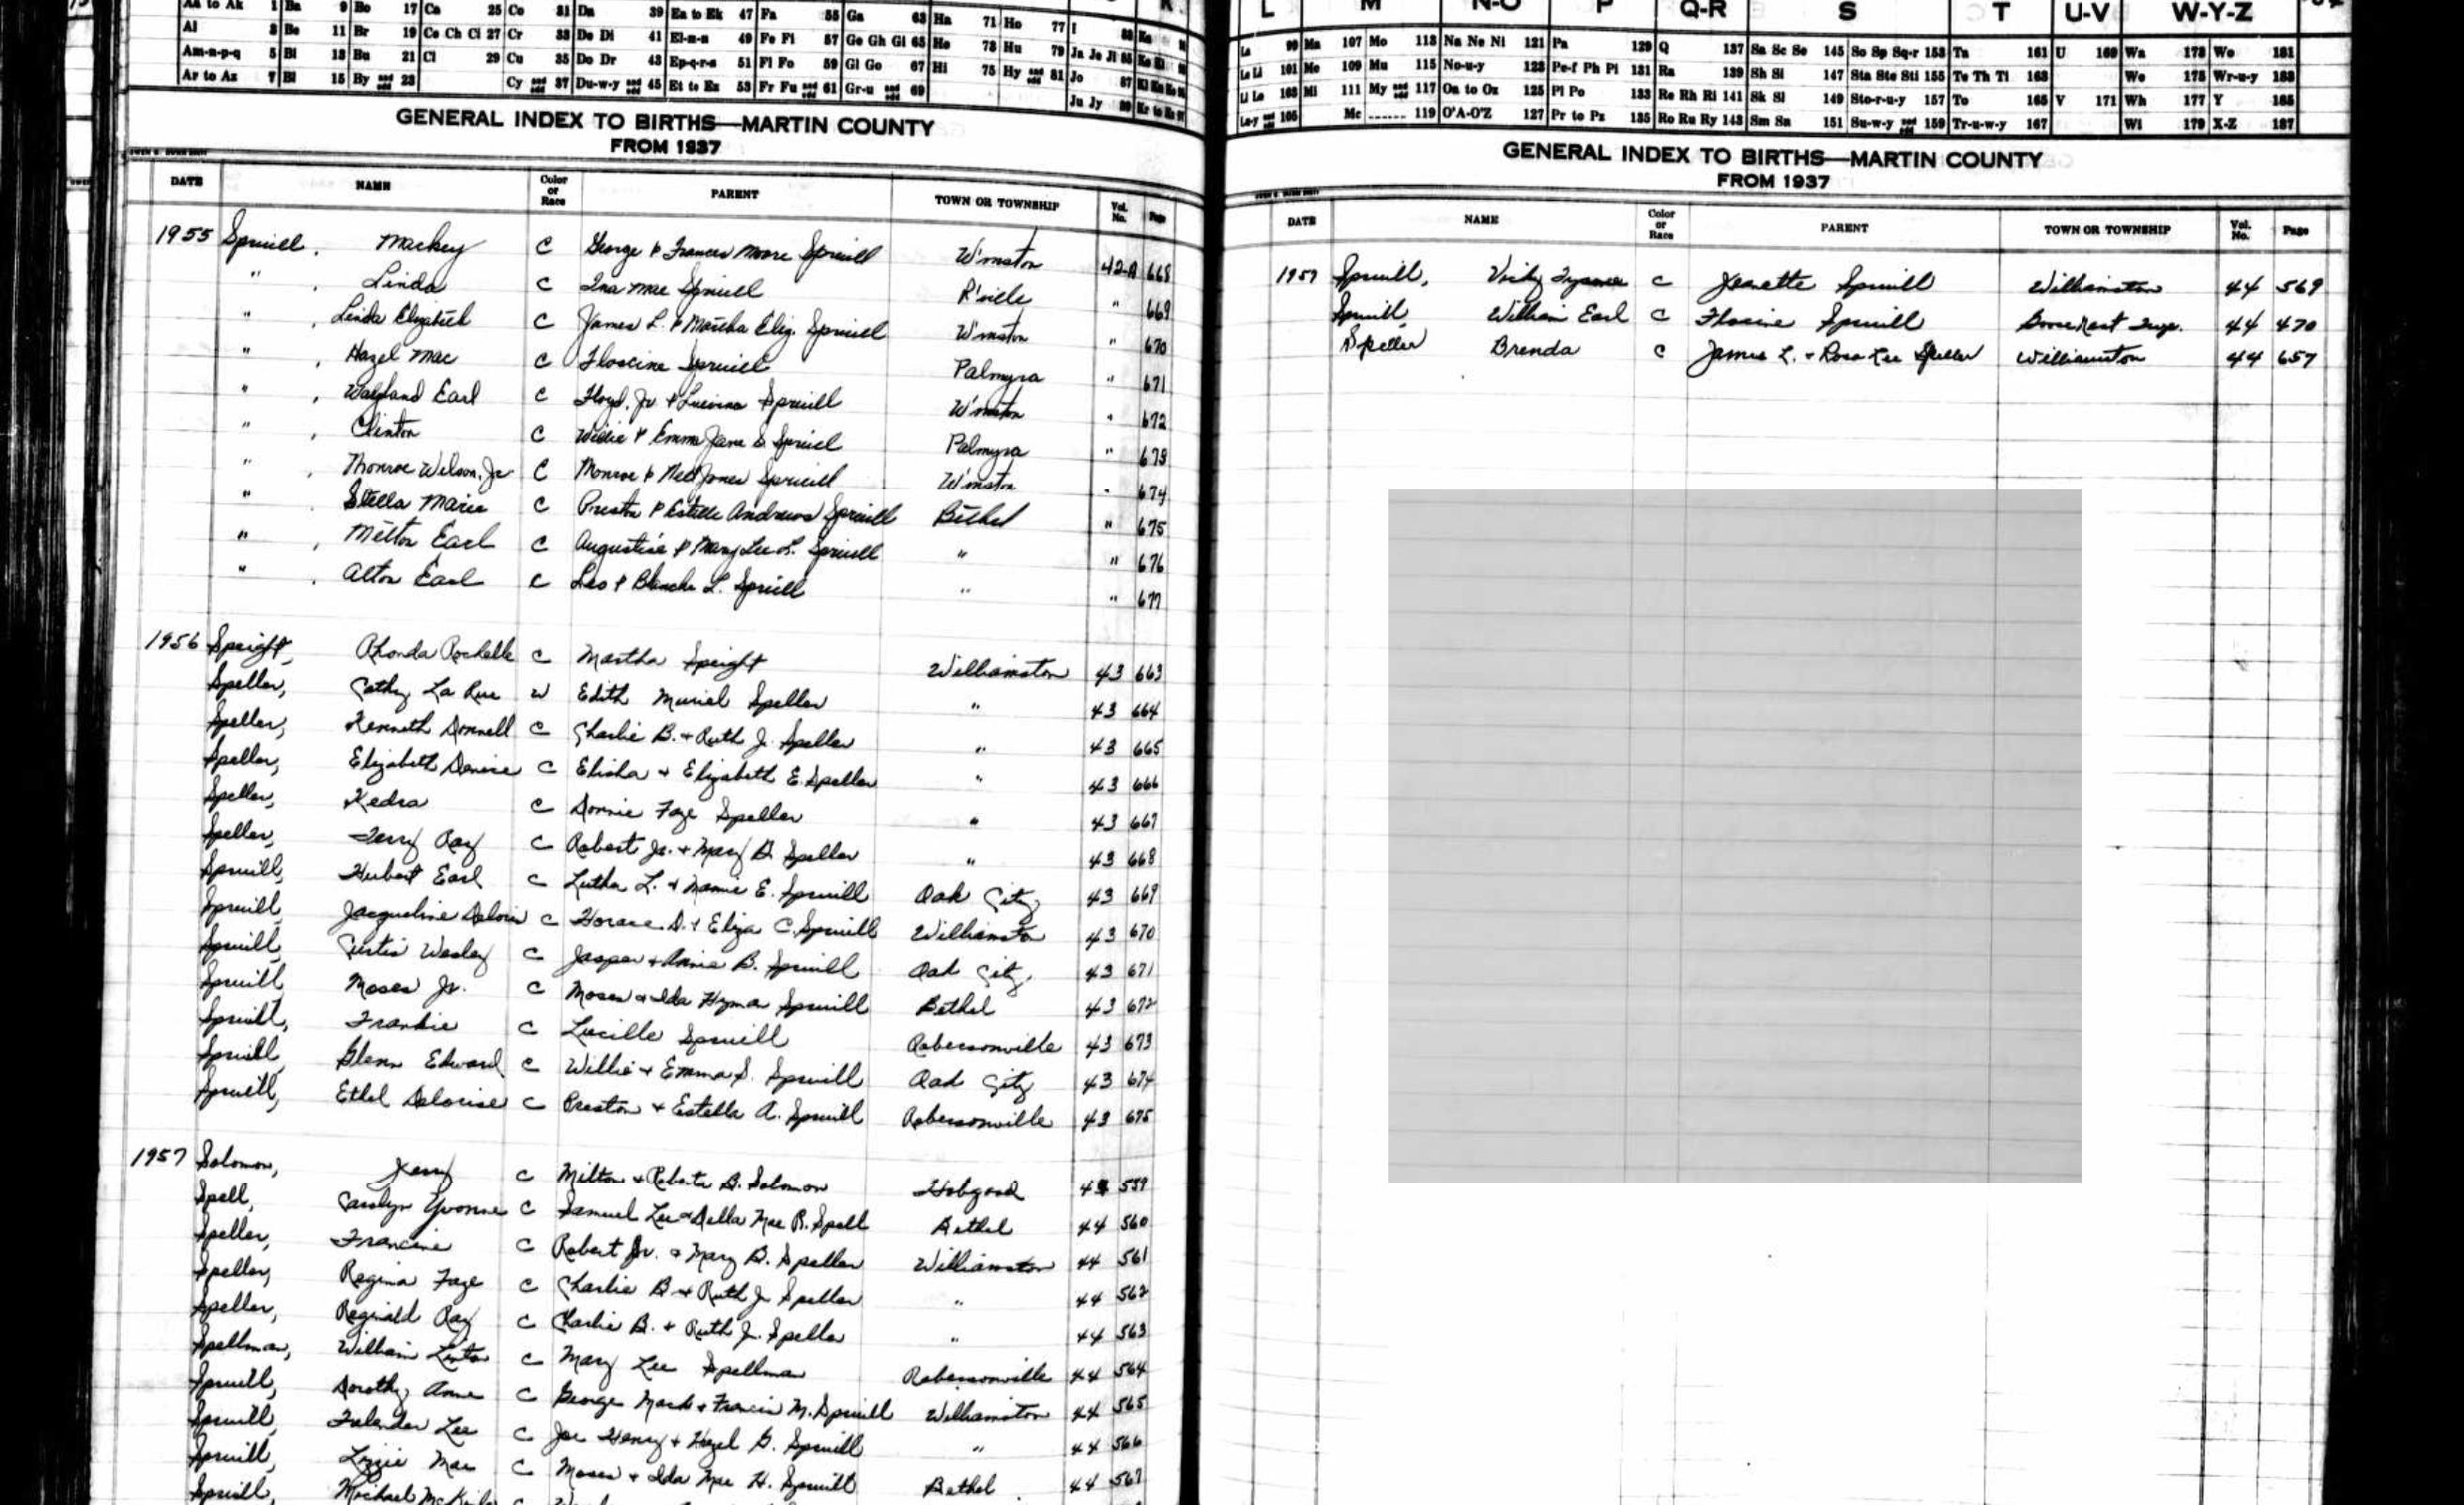 L M N-O P Q-R S T U-V W-Y-Z
Aa to Ak 1 Ba 9 Bo 17 Ca 25 Co 31 Da 39 Ea to Ek 47 Fa 55 Ga 63 Ha 71 Ho 77 I
Al 3 Be 11 Br 19 Ce Ch Ci 27 Cr 33 De Di 41 El-m-n 49 Fe Fi 57 Ge Gh Gi 65 He 73 Hu 79 Ja Je Ji 85
Am-n-p-q 5 Bi 13 Bu 21 Cl 29 Cu 35 Do Dr 43 Ep-q-r-s 51 Fl Fo 59 Gl Go 67 Hi 75 Hy and 81 Jo 87
Ar to Az 7 Bl 15 By and 23 Cy and 37 Du-w-y and 45 Et to Ez 53 Fr Fu and 61 Gr-u and 69 Ju Jy 89
GENERAL INDEX TO BIRTHS—MARTIN COUNTY
FROM 1937
DATE NAME Color or Race PARENT TOWN OR TOWNSHIP Vol. No. Page
1955 Spruill, Mackey C George & Frances Moore Spruill W'mston 42-A 668
" , Linda C Ina Mae Spruill R'ville " 669
" , Linda Elizabeth C James L. & Martha Eliz. Spruill W'mston " 670
" Hazel Mae C Floscine Spruill Palmyra " 671
" , Wayland Earl C Floyd, Jr & Spruill W'mston " 672
" , Clinton C Willie & Emma Jane S. Spruill Palmyra " 673
" , Monroe Wilson, Jr. C Monroe & Jones Spruill W'mston " 674
" Stella Marie C Preston & Estelle Andrews Spruill Bethel " 675
" , Milton Earl C Augustine & Mary Lee L. Spruill " " 676
" , Alton Earl C Leo & Blanche L. Spruill " " 677
1956 Speight, Rhonda Rochelle C Martha Speight Williamston 43 663
Speller, Cathy La Rue W Edith Muriel Speller " 43 664
Speller, Kenneth Donnell C Charlie B. + Ruth J. Speller " 43 665
Speller, Elizabeth Denise C Elisha + Elizabeth E. Speller " 43 666
Speller, Kedra C Donnie Faye Speller " 43 667
Speller, Terry Ray C Robert Jr. + Mary B. Speller " 43 668
Spruill, Hubert Earl C Luther L. + Mamie E. Spruill Oak City 43 669
Spruill, Jacqueline Delois C Horace D. + Eliza C. Spruill Williamston 43 670
Spruill, Curtis Wesley C Jasper + Annie B. Spruill Oak City 43 671
Spruill, Moses Jr. C Moses + Ida Hyman Spruill Bethel 43 672
Spruill, Frankie C Lucille Spruill Robersonville 43 673
Spruill, Glenn Edward C Willie + Emma S. Spruill Oak City 43 674
Spruill, Ethel Delorise C Preston + Estella A. Spruill Robersonville 43 675
1957 Solomon, Jerry C Milton + Roberta B. Solomon Hobgood 44 559
Spell, Carolyn Yvonne C Samuel Lee + Della Mae R. Spell Bethel 44 560
Speller, Francine C Robert Jr. + Mary B. Speller Williamston 44 561
Speller, Regina Faye C Charlie B + Ruth J. Speller " 44 562
Speller, Reginald Ray C Charlie B. + Ruth J. Speller " 44 563
Spellman, William Linton C Mary Lee Spellman Robersonville 44 564
Spruill, Dorothy Anne C George Mack + Francis M. Spruill Williamston 44 565
Spruill, Lee C Joe Henry + Hazel G. Spruill " 44 566
Spruill, Lizzie Mae C Moses + Ida Mae H. Spruill Bethel 44 567
Spruill, Michael
La 99 Ma 107 Mo 113 Na Ne Ni 121 Pa 129 Q 137 Sa Sc Se 145 So Sp Sq-r 153 Ta 161 U 169 Wa 173 Wo 181
Le Li 101 Me 109 Mu 115 No-u-y 123 Pe-f Ph Pi 131 Ra 139 Sh Si 147 Sta Ste Sti 155 Te Th Ti 163 We 175 Wr-u-y 183
Ll Lo 103 Mi 111 My and 117 Oa to Oz 125 Pl Po 133 Re Rh Ri 141 Sk Sl 149 Sto-r-u-y 157 To 165 V 171 Wh 177 Y 185
Lu-y and 105 Mc ------ 119 O'A-O'Z 127 Pr to Pz 135 Ro Ru Ry 143 Sm Sn 151 Su-w-y and 159 Tr-u-w-y 167 Wi 179 X-Z 187
GENERAL INDEX TO BIRTHS—MARTIN COUNTY
FROM 1937
DATE NAME Color or Race PARENT TOWN OR TOWNSHIP Vol. No. Page
1957 Spruill, Vicky C Jeanette Spruill Williamston 44 569
Spruill, William Earl C Flosine Spruill Goose Nest Twp. 44 470
Speller Brenda C James L. + Rosa Lee Speller Williamston 44 657